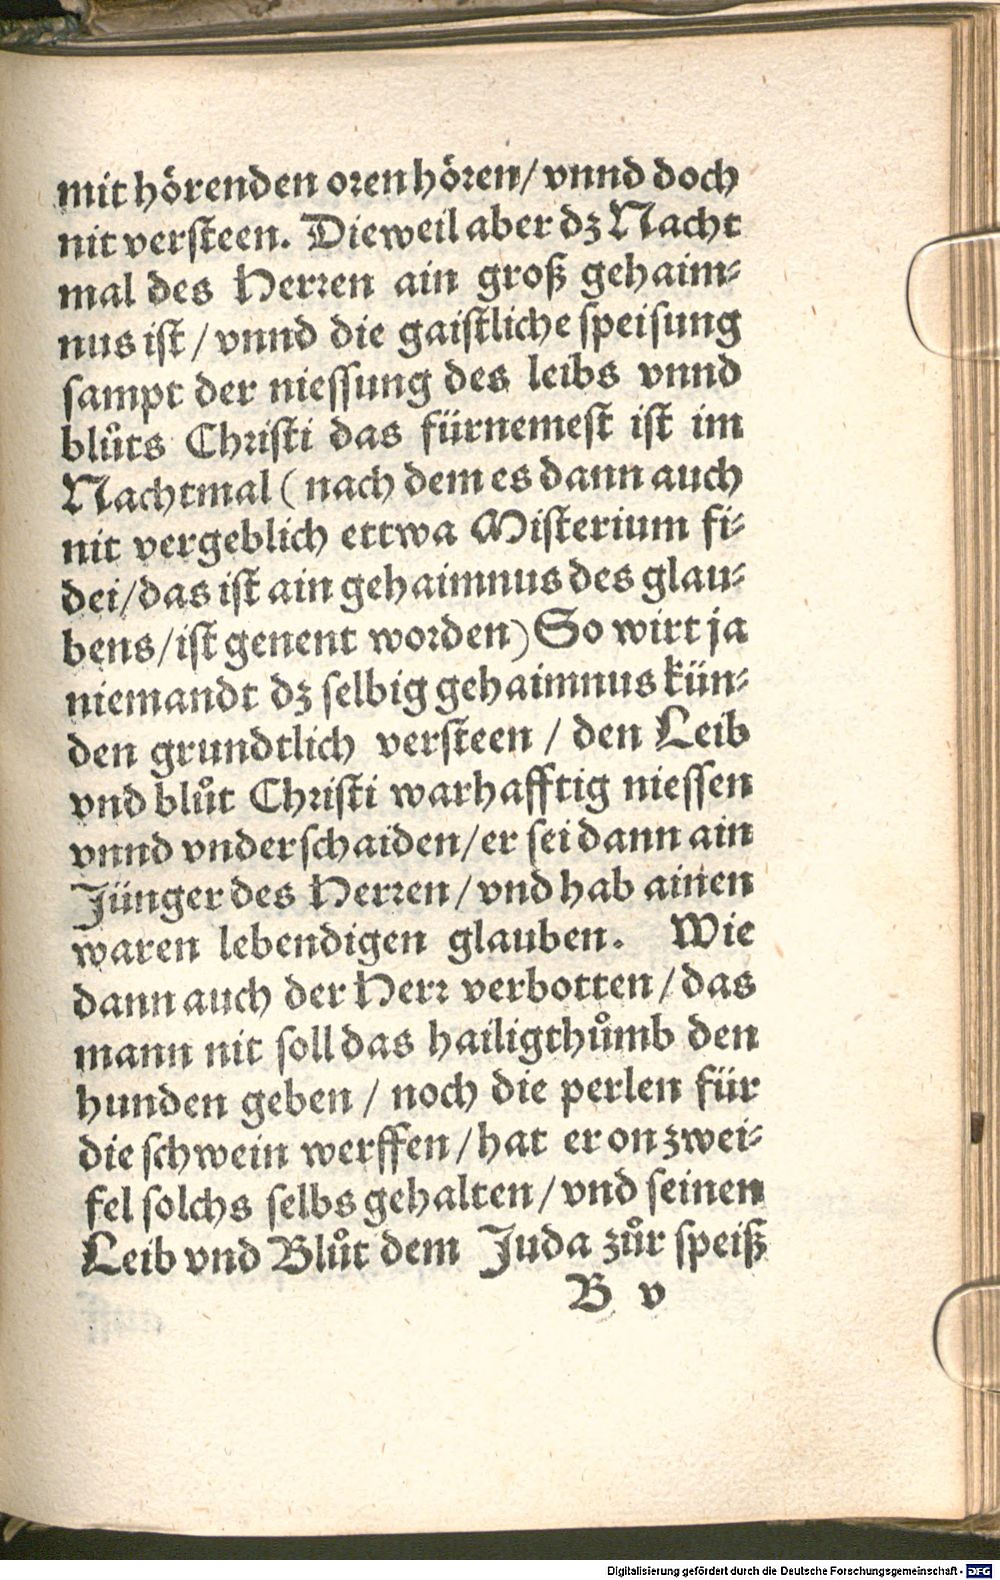 mit hörenden oren hören/ vnnd doch
nit versteen. Dieweil aber dz Nacht
mal des Herren ain groß gehaim⸗
nus ist / vnnd die gaistliche speisung
sampt der niessung des leibs vnnd
blůts Christi das fürnemest ist im
Nachtmal ( nach dem es dann auch
nit vergeblich ettwa Misterium fi⸗
dei/das ist ain gehaimnus des glau⸗
bens/ist genent worden) So wirt ja
niemandt dz selbig gehaimnus kün⸗
den grundtlich versteen / den Leib
vnd blůt Christi warhafftig niessen
vnnd vnderschaiden/er sei dann ain
Jünger des Herren / vnd hab ainen
waren lebendigen glauben. Wie
dann auch der Herr verbotten / das
mann nit soll das hailigthůmb den
hunden geben / noch die perlen für
die schwein werffen / hat er on zwei⸗
fel solchs selbs gehalten / vnd seinen
Leib vnd Blůt dem Juda zůr speiß
B v
Digitalisierung gefördert durch die Deutsche Forschungsgemeinschaft - DFG